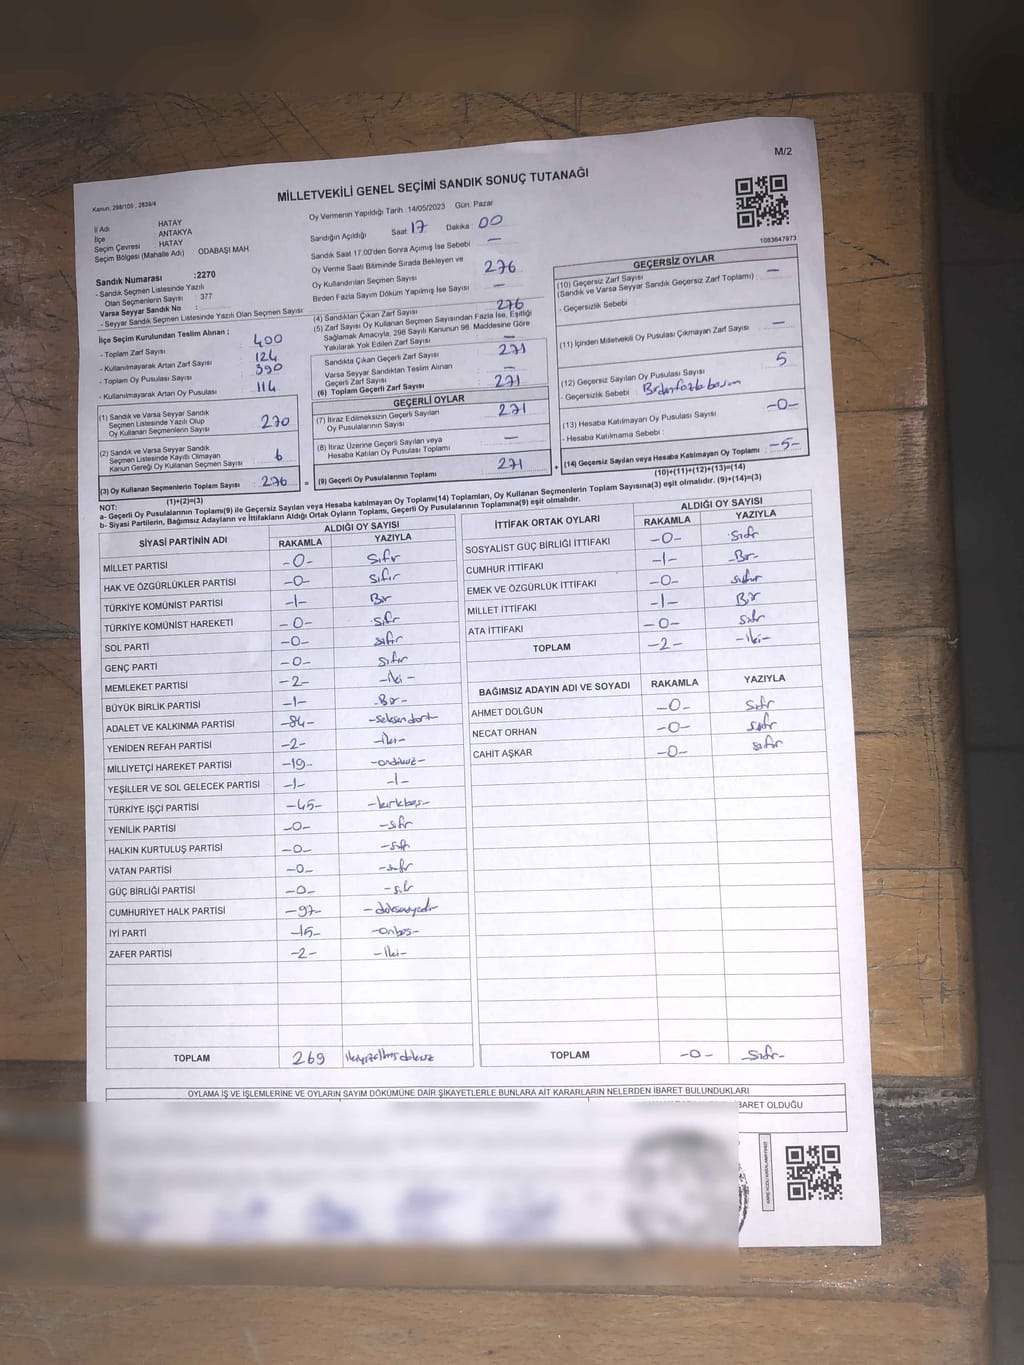 M/2
MİLLETVEKİLİ GENEL SEÇİMİ SANDIK SONUÇ TUTANAĞI
Kanun: 298/105 ; 2839/4
Oy Vermenin Yapıldığı Tarih : 14/05/2023 Gün: Pazar
İl Adı HATAY
İlçe ANTAKYA
Seçim Çevresi HATAY
Seçim Bölgesi (Mahalle Adı) ODABAŞI MAH.
Sandık Numarası :2270
- Sandık Seçmen Listesinde Yazılı
Olan Seçmenlerin Sayısı : 377
Varsa Seyyar Sandık No :
- Seyyar Sandık Seçmen Listesinde Yazılı Olan Seçmen Sayısı
İlçe Seçim Kurulundan Teslim Alınan ;
- Toplam Zarf Sayısı : 400
- Kullanılmayarak Artan Zarf Sayısı : 124
- Toplam Oy Pusulası Sayısı : 390
- Kullanılmayarak Artan Oy Pusulası : 114
(1) Sandık ve Varsa Seyyar Sandık
Seçmen Listesinde Yazılı Olup
Oy Kullanan Seçmenlerin Sayısı 270
(2) Sandık ve Varsa Seyyar Sandık
Seçmen Listesinde Kayıtlı Olmayan
Kanun Gereği Oy Kullanan Seçmen Sayısı 6
(3) Oy Kullanan Seçmenlerin Toplam Sayısı : 276
(1)+(2)=(3)
Sandığın Açıldığı Saat 17 Dakika : 00
Sandık Saat 17.00'den Sonra Açımış İse Sebebi –
Oy Verme Saati Bitiminde Sırada Bekleyen ve
Oy Kullandırılan Seçmen Sayısı 276
Birden Fazla Sayım Döküm Yapılmış İse Sayısı –
(4) Sandıktan Çıkan Zarf Sayısı 276
(5) Zarf Sayısı Oy Kullanan Seçmen Sayısından Fazla İse, Eşitliği
Sağlamak Amacıyla, 298 Sayılı Kanunun 98. Maddesine Göre
Yakılarak Yok Edilen Zarf Sayısı –
Sandıkta Çıkan Geçerli Zarf Sayısı 271
Varsa Seyyar Sandıktan Teslim Alınan
Geçerli Zarf Sayısı –
(6) Toplam Geçerli Zarf Sayısı 271
GEÇERLİ OYLAR
(7) İtiraz Edilmeksizin Geçerli Sayılan
Oy Pusulalarının Sayısı 271
(8) İtiraz Üzerine Geçerli Sayılan veya
Hesaba Katılan Oy Pusulası Toplamı –
= (9) Geçerli Oy Pusulalarının Toplamı 271 +
1083647973
GEÇERSİZ OYLAR
(10) Geçersiz Zarf Sayısı
(Sandık ve Varsa Seyyar Sandık Geçersiz Zarf Toplamı) –
- Geçersizlik Sebebi :
(11) İçinden Milletvekili Oy Pusulası Çıkmayan Zarf Sayısı –
(12) Geçersiz Sayılan Oy Pusulası Sayısı 5
- Geçersizlik Sebebi : Birden fazla basım
(13) Hesaba Katılmayan Oy Pusulası Sayısı -0-
- Hesaba Katılmama Sebebi :
(14) Geçersiz Sayılan veya Hesaba Katılmayan Oy Toplamı -5-
(10)+(11)+(12)+(13)=(14)
NOT:
a- Geçerli Oy Pusulalarının Toplamı(9) ile Geçersiz Sayılan veya Hesaba katılmayan Oy Toplamı(14) Toplamları, Oy Kullanan Seçmenlerin Toplam Sayısına(3) eşit olmalıdır. (9)+(14)=(3)
b- Siyasi Partilerin, Bağımsız Adayların ve İttifakların Aldığı Ortak Oyların Toplamı, Geçerli Oy Pusulalarının Toplamına(9) eşit olmalıdır.
SİYASİ PARTİNİN ADI ALDIĞI OY SAYISI
RAKAMLA YAZIYLA
MİLLET PARTİSİ -0- Sıfır
HAK VE ÖZGÜRLÜKLER PARTİSİ -0- Sıfır
TÜRKİYE KOMÜNİST PARTİSİ -1- Bir
TÜRKİYE KOMÜNİST HAREKETİ -0- Sıfır
SOL PARTİ -0- sıfır
GENÇ PARTİ -0- Sıfır
MEMLEKET PARTİSİ -2- -İki-
BÜYÜK BİRLİK PARTİSİ -1- -Bir-
ADALET VE KALKINMA PARTİSİ -84- -seksendört-
YENİDEN REFAH PARTİSİ -2- -iki-
MİLLİYETÇİ HAREKET PARTİSİ -19- -ondokuz-
YEŞİLLER VE SOL GELECEK PARTİSİ -1- -1-
TÜRKİYE İŞÇİ PARTİSİ -45- -kırkbeş-
YENİLİK PARTİSİ -0- -sıfır
HALKIN KURTULUŞ PARTİSİ -0- -sıfır
VATAN PARTİSİ -0- -sıfır
GÜÇ BİRLİĞİ PARTİSİ -0- -sıfır
CUMHURİYET HALK PARTİSİ -97- -doksanyedi-
İYİ PARTİ -15- -Onbeş-
ZAFER PARTİSİ -2- -İki-
TOPLAM 269 ikiyüzaltmışdokuz
İTTİFAK ORTAK OYLARI ALDIĞI OY SAYISI
RAKAMLA YAZIYLA
SOSYALİST GÜÇ BİRLİĞİ İTTİFAKI -0- Sıfır
CUMHUR İTTİFAKI -1- -Bir-
EMEK VE ÖZGÜRLÜK İTTİFAKI -0- sıfır
MİLLET İTTİFAKI -1- Bir
ATA İTTİFAKI -0- Sıfır
TOPLAM -2- -İki-
BAĞIMSIZ ADAYIN ADI VE SOYADI RAKAMLA YAZIYLA
AHMET DOLĞUN -0- Sıfır
NECAT ORHAN -0- sıfır
CAHİT AŞKAR -0- sıfır
TOPLAM -0- Sıfır-
OYLAMA İŞ VE İŞLEMLERİNE VE OYLARIN SAYIM DÖKÜMÜNE DAİR ŞİKAYETLERLE BUNLARA AİT KARARLARIN NELERDEN İBARET BULUNDUKLARI
İBARET OLDUĞU